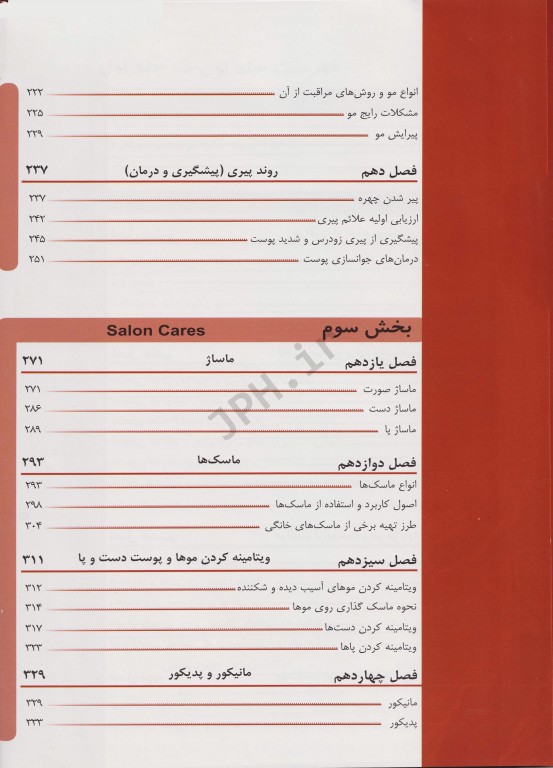 انواع مو و روش‌های مراقبت از آن ۲۲۲
مشکلات رایج مو ۲۲۵
پیرایش مو ۲۲۹
فصل دهم روند پیری (پیشگیری و درمان) ۲۳۷
پیر شدن چهره ۲۳۷
ارزیابی اولیه علائم پیری ۲۴۲
پیشگیری از پیری زودرس و شدید پوست ۲۴۵
درمان‌های جوانسازی پوست ۲۵۱
بخش سوم Salon Cares
فصل یازدهم ماساژ ۲۷۱
ماساژ صورت ۲۷۱
ماساژ دست ۲۸۶
ماساژ پا ۲۸۹
فصل دوازدهم ماسک‌ها ۲۹۳
انواع ماسک‌ها ۲۹۳
اصول کاربرد و استفاده از ماسک‌ها ۲۹۸
طرز تهیه برخی از ماسک‌های خانگی ۳۰۴
فصل سیزدهم ویتامینه کردن موها و پوست دست و پا ۳۱۱
ویتامینه کردن موهای آسیب دیده و شکننده ۳۱۲
نحوه ماسک گذاری روی موها ۳۱۴
ویتامینه کردن دست‌ها ۳۱۷
ویتامینه کردن پاها ۳۲۳
فصل چهاردهم مانیکور و پدیکور ۳۲۹
مانیکور ۳۲۹
پدیکور ۳۳۳
JPH.ir